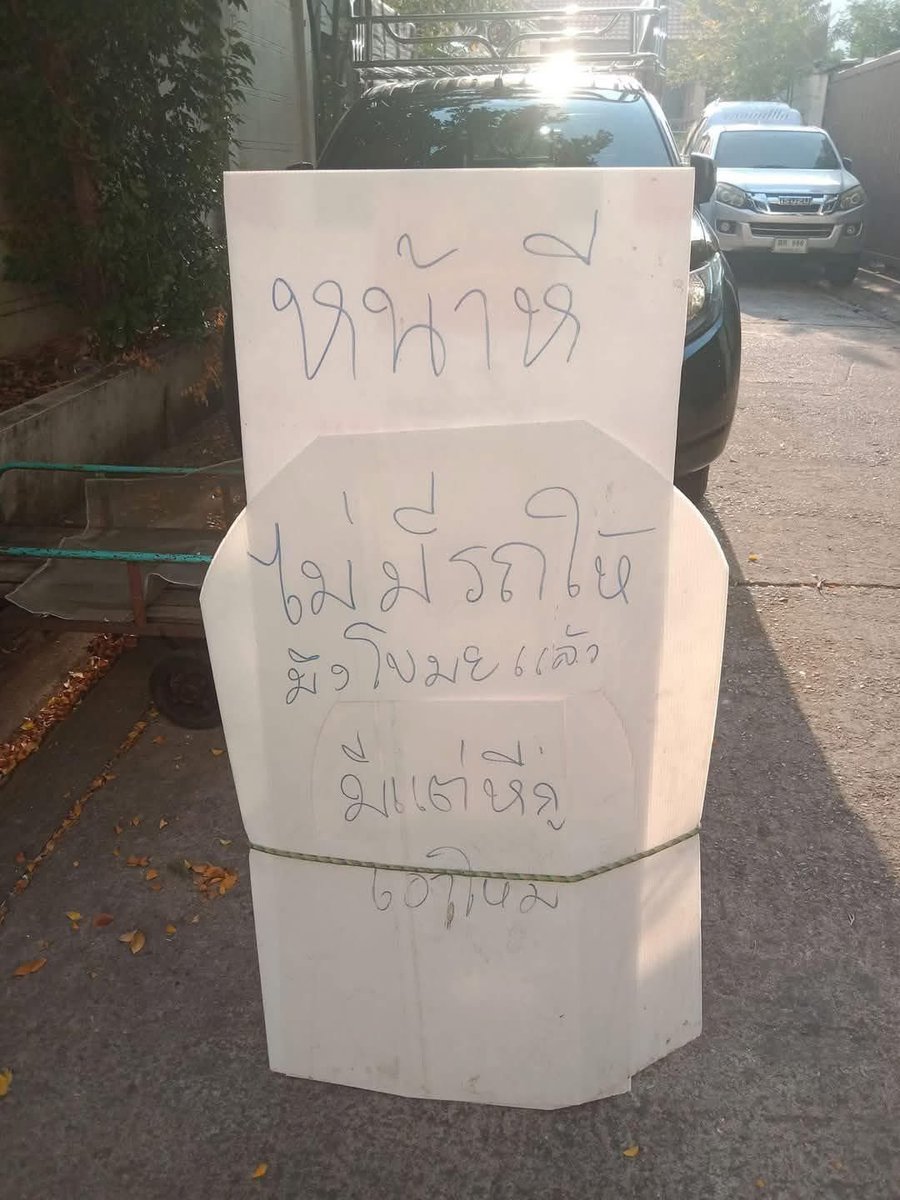 หน้าหี
ไม่มีรถให้
มึงโขมยแล้ว
มีแต่หีกู
เอาไหม
ISUZU